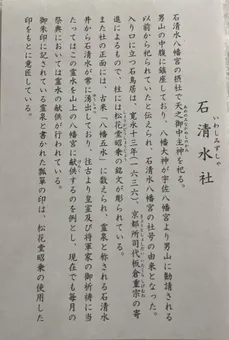 石清水社
いわしみずしゃ
石清水八幡宮の摂社で天之御中主神を祀る。
あめのみなかぬしのかみ
男山の中腹に鎮座しており、八幡大神が宇佐八幡宮より男山に勧請される
以前から祀られていたと伝えられ、石清水八幡宮の社号の由来となった。
入り口に立つ石鳥居は、寛永十三年(一六三六)、京都所司代・板倉重宗の寄
進によるもので、柱には松花堂昭乗の銘文が彫られている。
また社の正面には、古来「八幡五水」に数えられ、霊泉と称される石清水
井から石清水が常に湧出しており、往古より皇室及び将軍家の御祈祷に当
たってはこの霊水を山上の八幡宮に献供するのを例とし、現在でも毎月の
祭典においては霊水の献供が行われている。
御朱印に記されている霊泉と書かれた瓢箪の印は、松花堂昭乗の使用した
印をもとに意匠している。